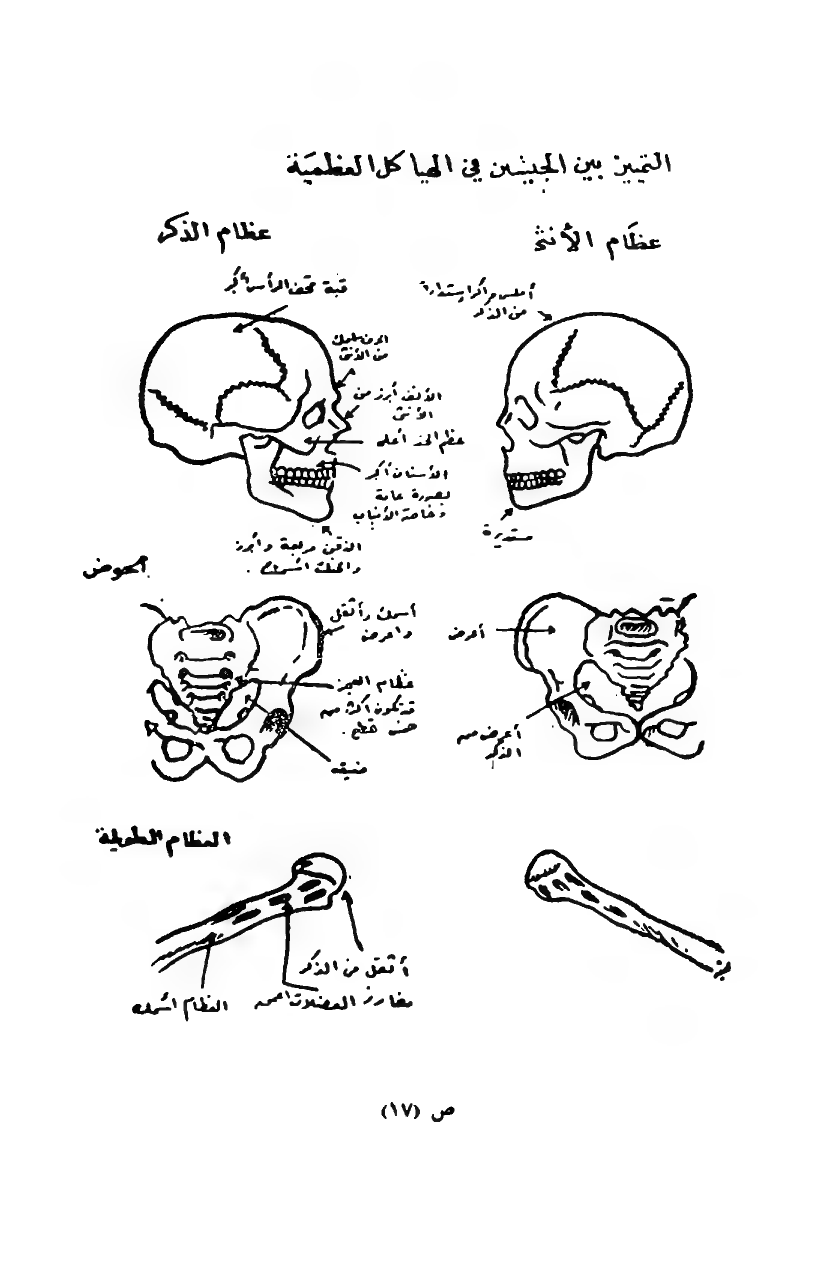 التمييز بين الجنسين في الهياكل العظمية
عظام الأنثى
عظام الذكر
قبة قحف الرأس أكبر
أملس وأكثر إستدارة
من الذكر
من الأنثى
الأنف أبرز من
الأنثى
عظم الخد أعلى
الأسنان أكبر
بصورة عامة
وخاصة الأنياب
مستديرة
الذقن مربعة وأبرز
والحنك
الحوض
أسمك وأثقل
وأعرض
أعرض
عظام العجز
قد تكون أكثر من
خمس قطع .
ضيقه
أعرض من
الذكر
العظام الطويلة
أثقل من الذكر
مغارز العضلات
العظام أسمك
ص (١٧)